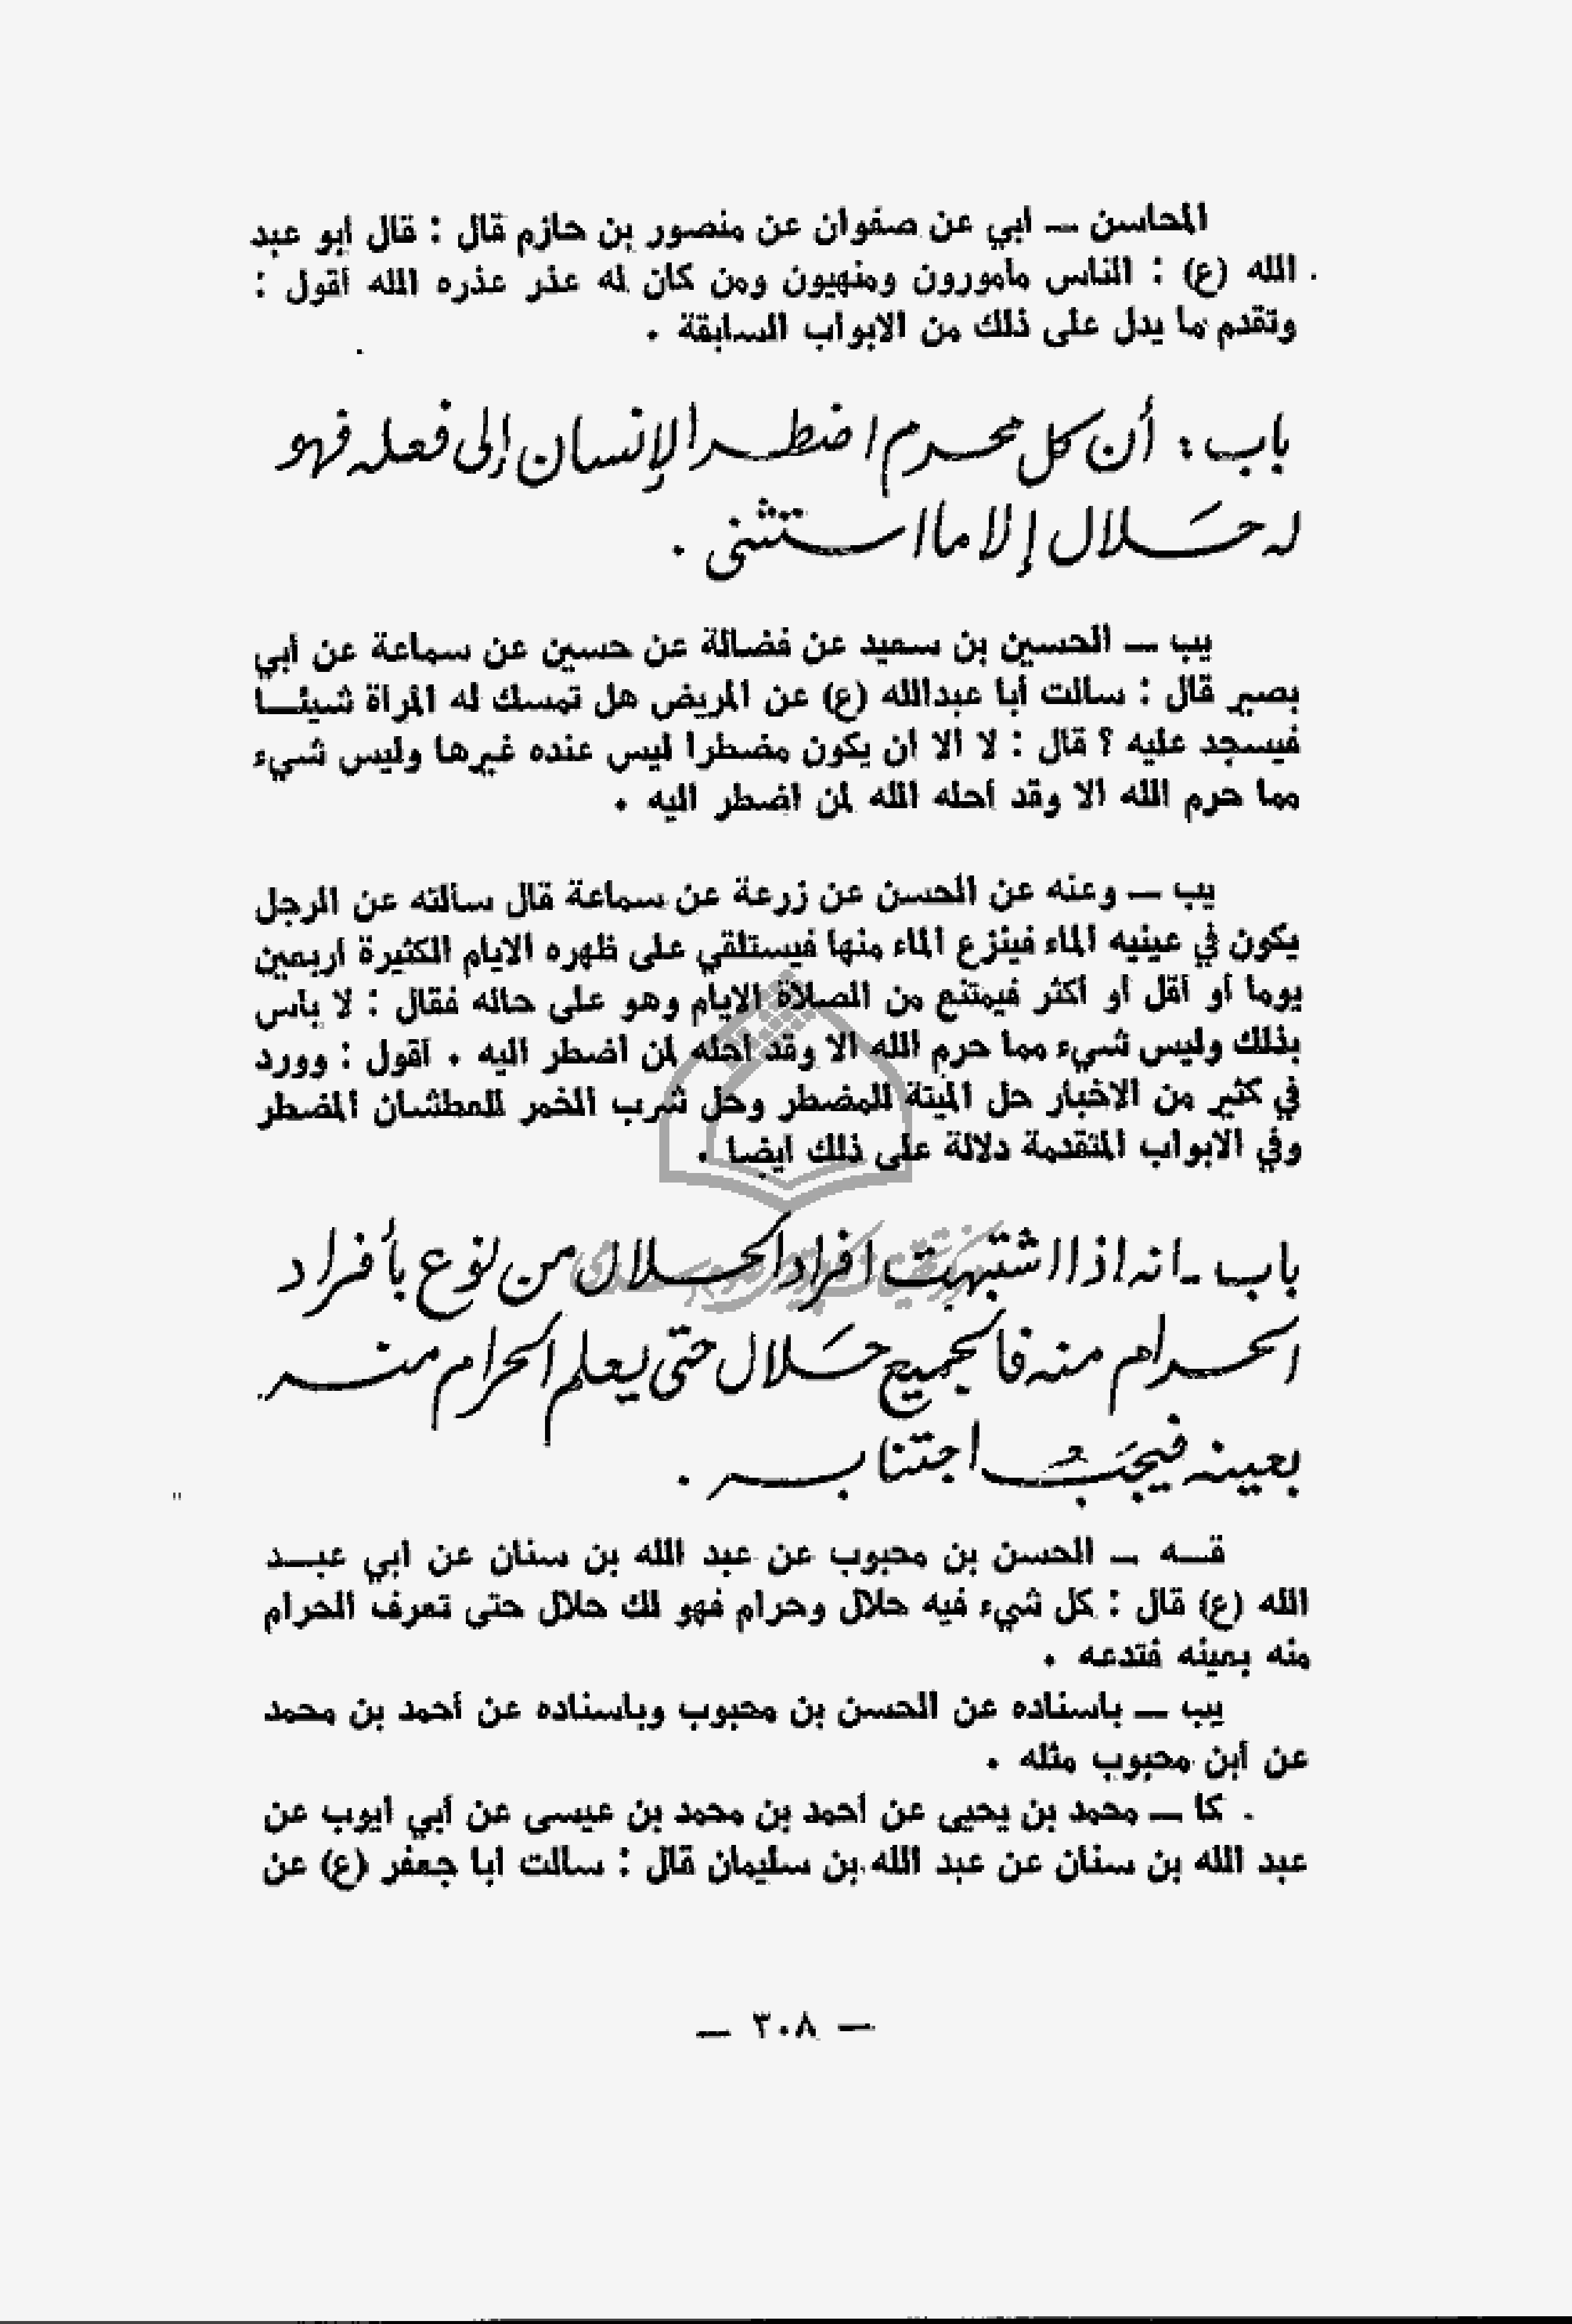 المحاسن — ابي عن صفوان عن منصور بن حازم قال : قال أبو عبد
الله (ع) : الناس مأمورون ومنهيون ومن كان له عذر عذره الله أقول :
وتقدم ما يدل على ذلك من الابواب السابقة .
باب : أن كل محرم اضطر الإنسان إلى فعله فهو
له حَلال إلا ما استثنى .
يب — الحسين بن سعيد عن فضالة عن حسين عن سماعة عن أبي
بصير قال : سالت أبا عبدالله (ع) عن المريض هل تمسك له المرأة شيئـا
فيسجد عليه ؟ قال : لا الا ان يكون مضطرا ليس عنده غيرها وليس شيء
مما حرم الله الا وقد أحله الله لمن اضطر اليه .
يب — وعنه عن الحسن عن زرعة عن سماعة قال سألته عن الرجل
يكون في عينيه الماء فينزع الماء منها فيستلقي على ظهره الايام الكثيرة اربعين
يوما أو أقل أو أكثر فيمتنع من الصلاة الايام وهو على حاله فقال : لا بأس
بذلك وليس شيء مما حرم الله الا وقد احله لمن أضطر اليه . أقول : وورد
في كثير من الاخبار حل الميتة للمضطر وحل شرب الخمر للعطشان المضطر
وفي الابواب المتقدمة دلالة على ذلك ايضا .
باب - انه اذا اشتبهت افراد الحلال من نوع بأفراد
الحرام منه فالجميع حَلال حتى يعلم الحرام منه
بعينه فيجَبُ اجتنابه .
قــه — الحسن بن محبوب عن عبد الله بن سنان عن ابي عبــد
الله (ع) قال : كل شيء فيه حلال وحرام فهو لك حلال حتى تعرف الحرام
منه بعينه فتدعه .
يب — باسناده عن الحسن بن محبوب وباسناده عن أحمد بن محمد
عن أبن محبوب مثله .
كا — محمد بن يحيى عن أحمد بن محمد بن عيسى عن أبي أيوب عن
عبد الله بن سنان عن عبد الله بن سليمان قال : سالت ابا جعفر (ع) عن
— ٣٠٨ —